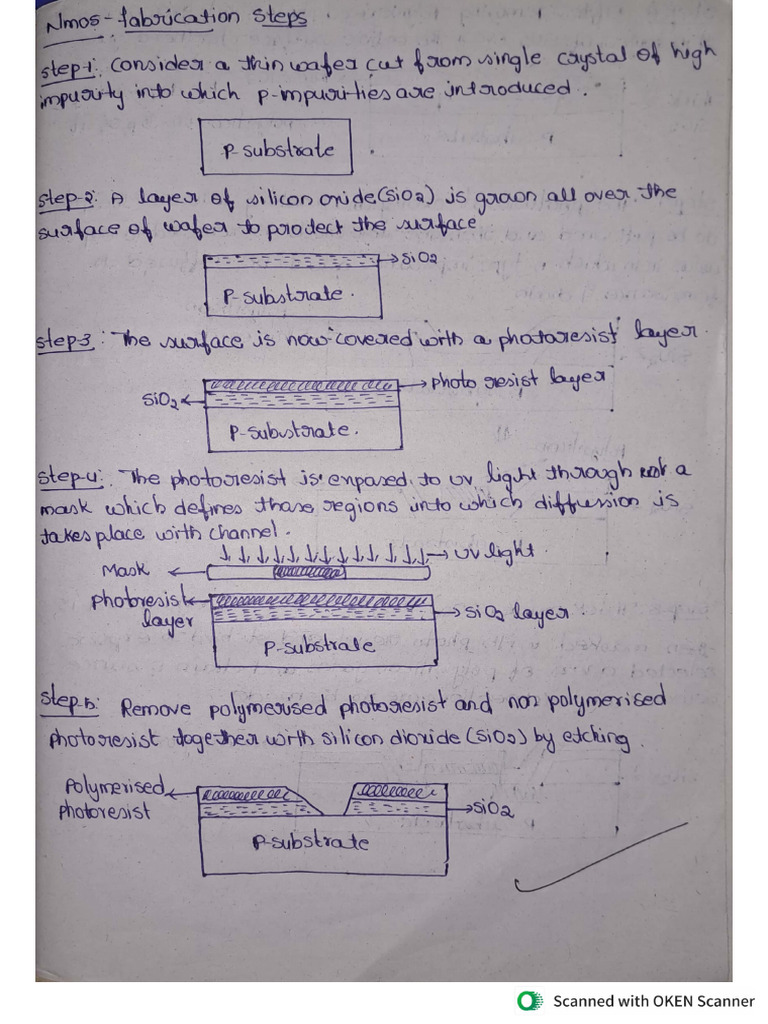 Nmos - fabrication Steps
Step-1: Consider a thin wafer cut from single crystal of high
impurity into which p-impurities are introduced.
P-substrate
Step-2: A layer of silicon oxide (SiO2) is grown all over the
surface of wafer to protect the surface.
SiO2
P-substrate.
Step-3: The surface is now covered with a photoresist layer.
photo resist layer
SiO2
P-substrate.
Step-4: The photoresist is exposed to uv light through a
mask which defines those regions into which diffussion is
takes place with channel.
uv light.
Mask
photoresist
layer
SiO2 layer.
P-substrate
Step-5: Remove polymerised photoresist and non polymerised
photoresist together with silicon dioxide (SiO2) by etching.
Polymerised
photoresist
SiO2
P-substrate
Scanned with OKEN Scanner